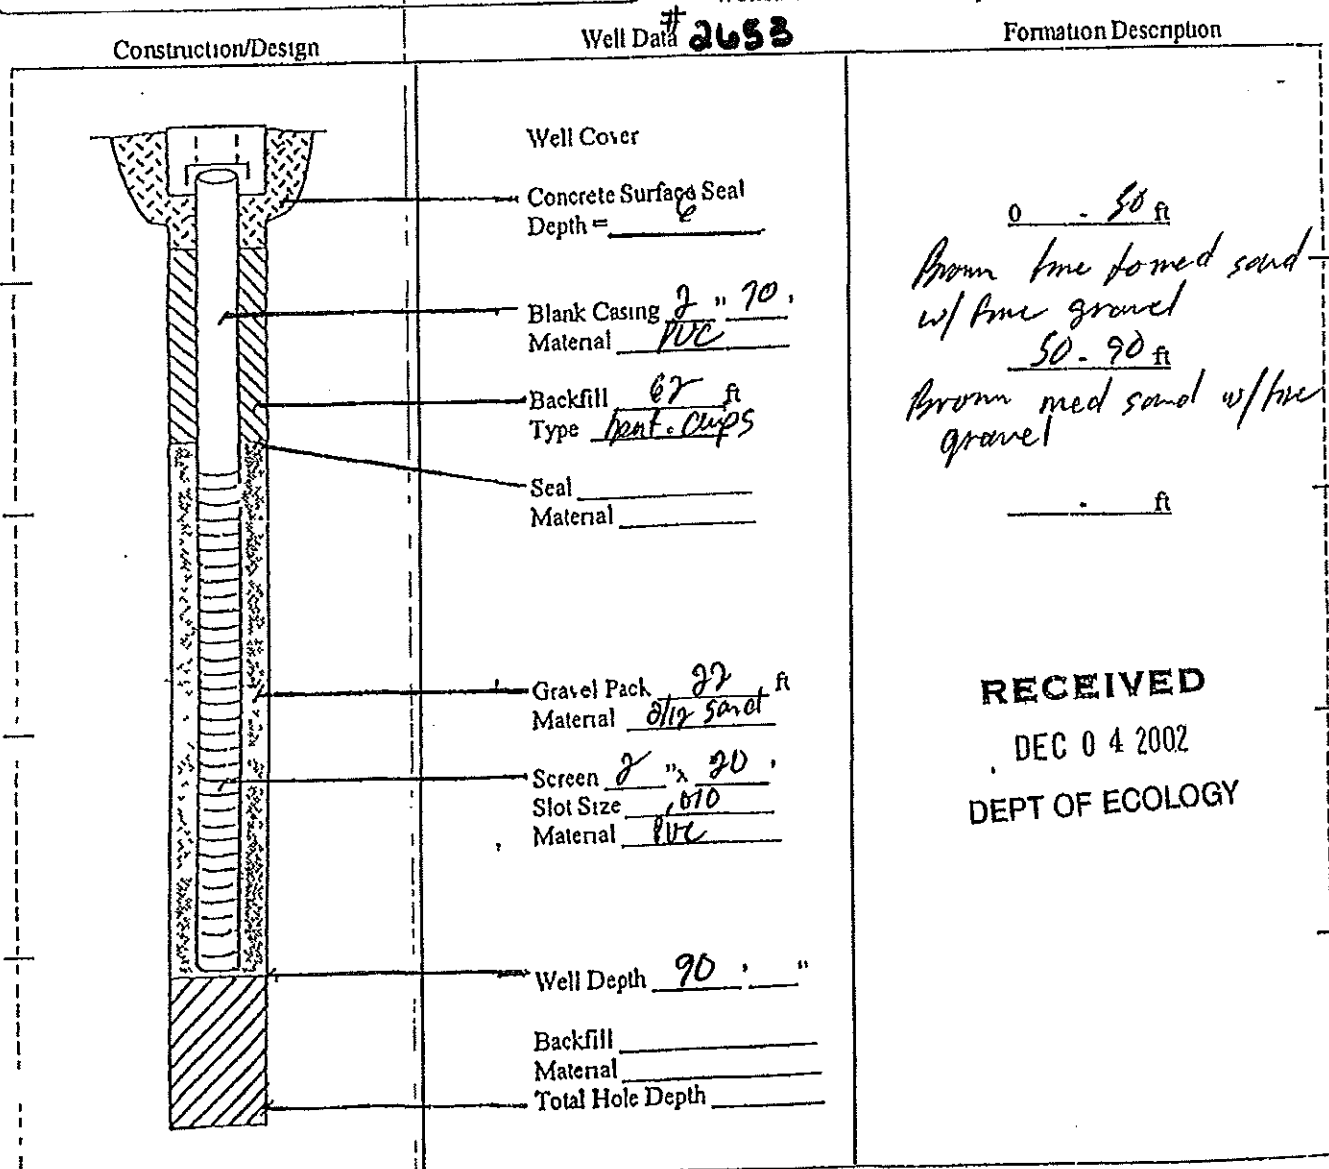 Construction/Design
Well Data # 2653
Formation Description
Well Cover
Concrete Surface Seal
Depth = 6
Blank Casing 2 " 70 '
Material PVC
Backfill 62 ft
Type bent. chips
Seal
Material
Gravel Pack 22 ft
Material 2/12 sand
Screen 2 "x 20 '
Slot Size .010
Material PVC
Well Depth 90 ' "
Backfill
Material
Total Hole Depth
0 - 50 ft
Brown fine to med sand
w/ fine gravel
50 - 90 ft
Brown med sand w/ fine
gravel
- ft
RECEIVED
DEC 04 2002
DEPT OF ECOLOGY